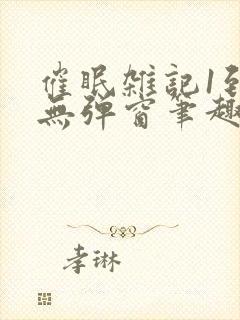 催眠雑記1到
無弹窗筆趣
李琳